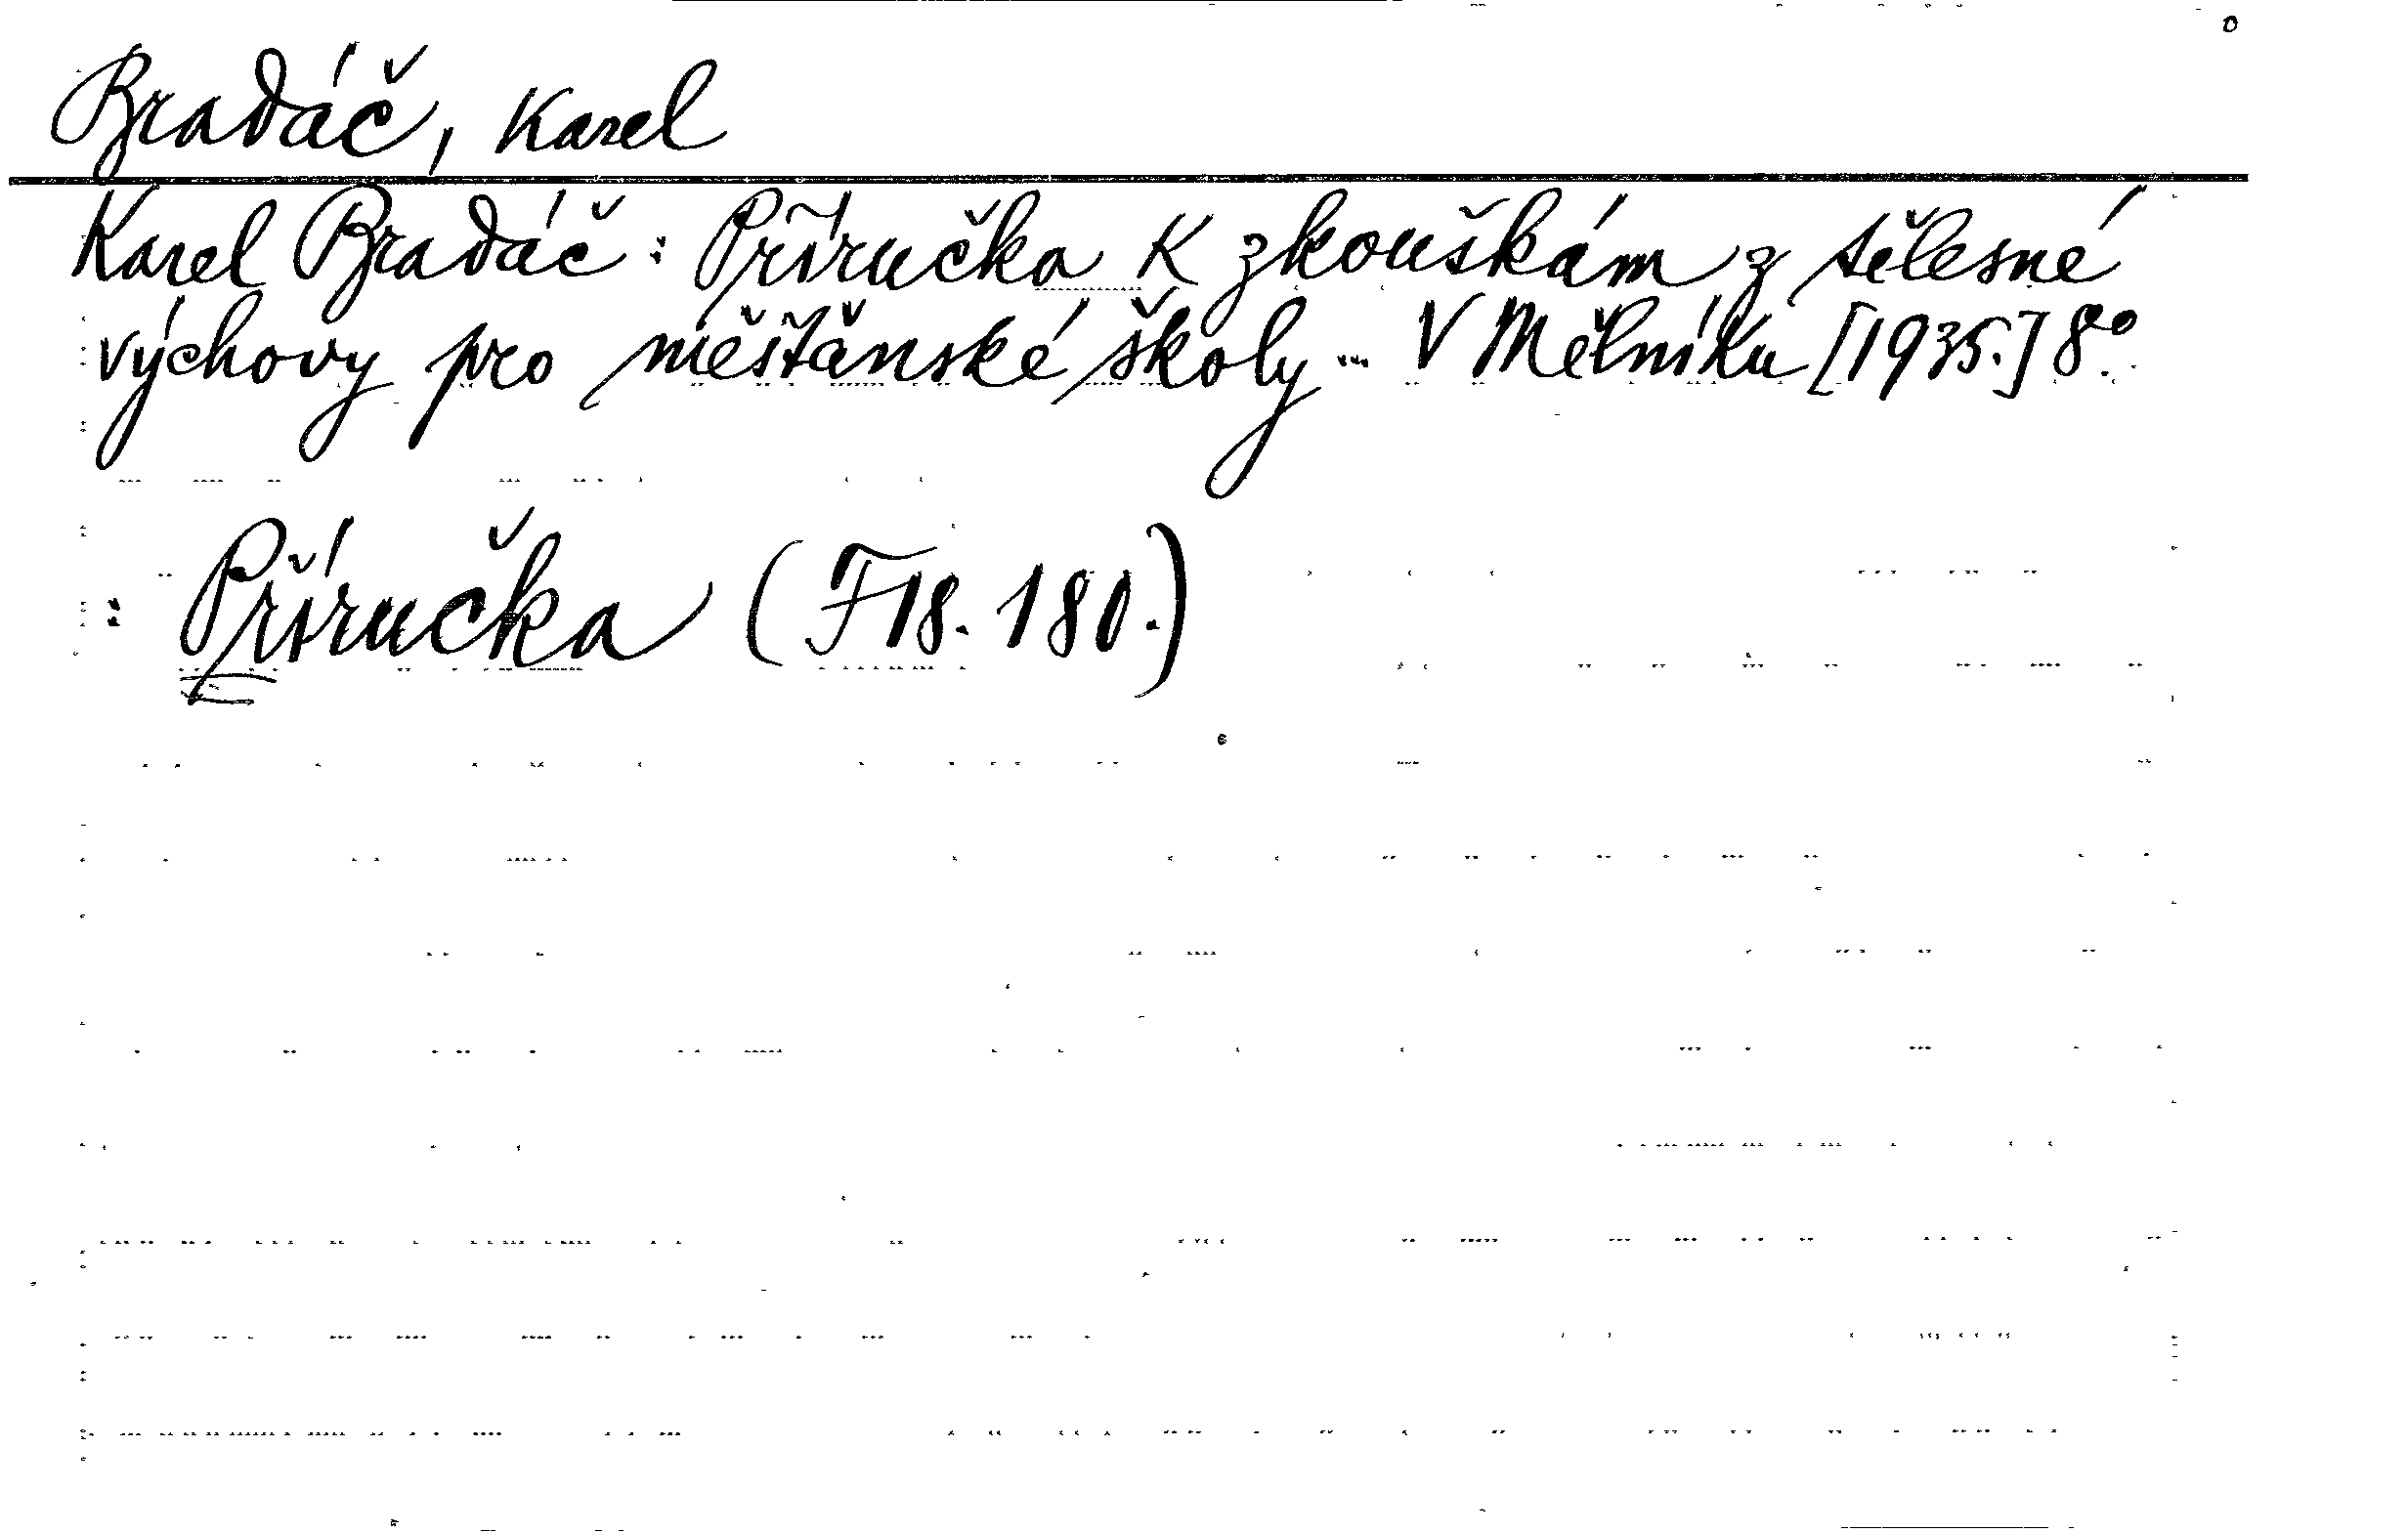 Bradáč, Karel
Karel Bradáč: Příručka k zkouškám z tělesné
výchovy pro měšťanské školy ... V Mělníku [1935.] 8°.
: Příručka (F 18. 180.)